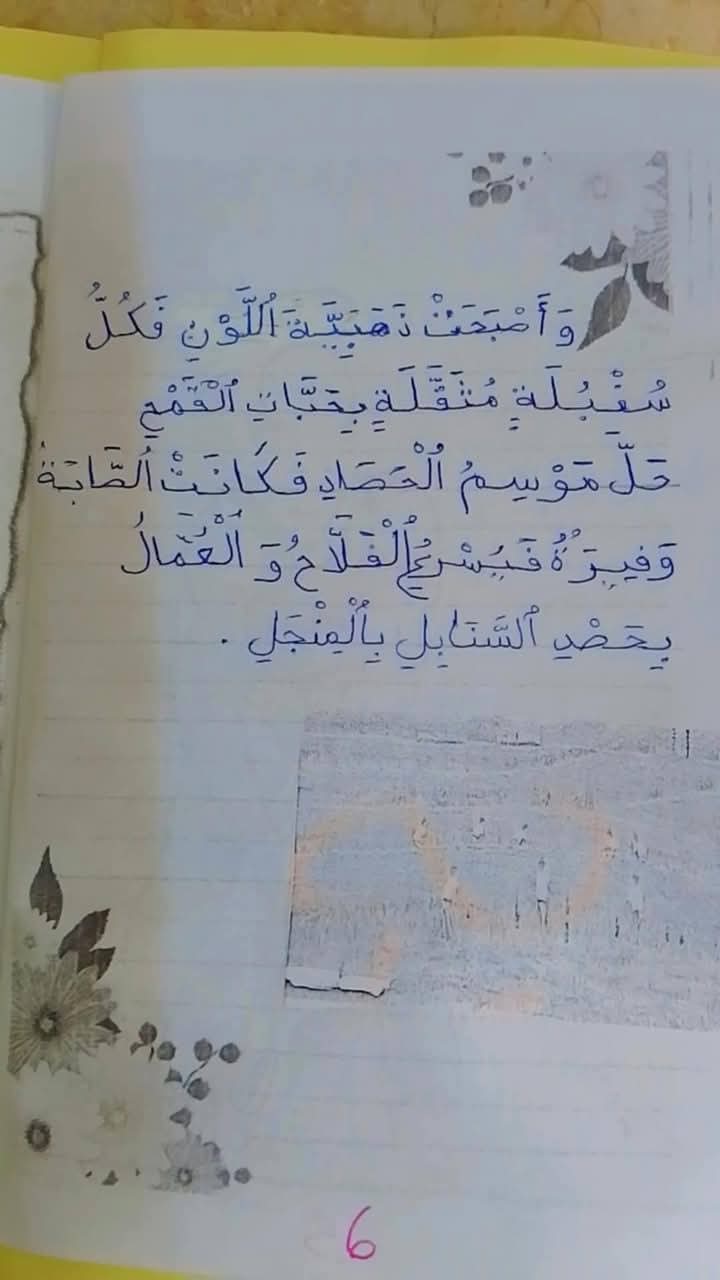 وَأَصْبَحَتْ ذَهَبِيَّةَ ٱللَّوْنِ فَكُلُّ
سُنْبُلَةٍ مُثَقَّلَةٍ بِحَبَّاتِ ٱلْقَمْحِ
حَلَّ مَوْسِمُ ٱلْحَصَادِ فَكَانَتْ ٱلصَّابَةُ
وَفِيرَةٌ فَيُسْرِعُ ٱلْفَلَّاحُ وَ ٱلْعُمَّالُ
بِحَصْدِ ٱلسَّنَابِلِ بِٱلْمِنْجَلِ .
6